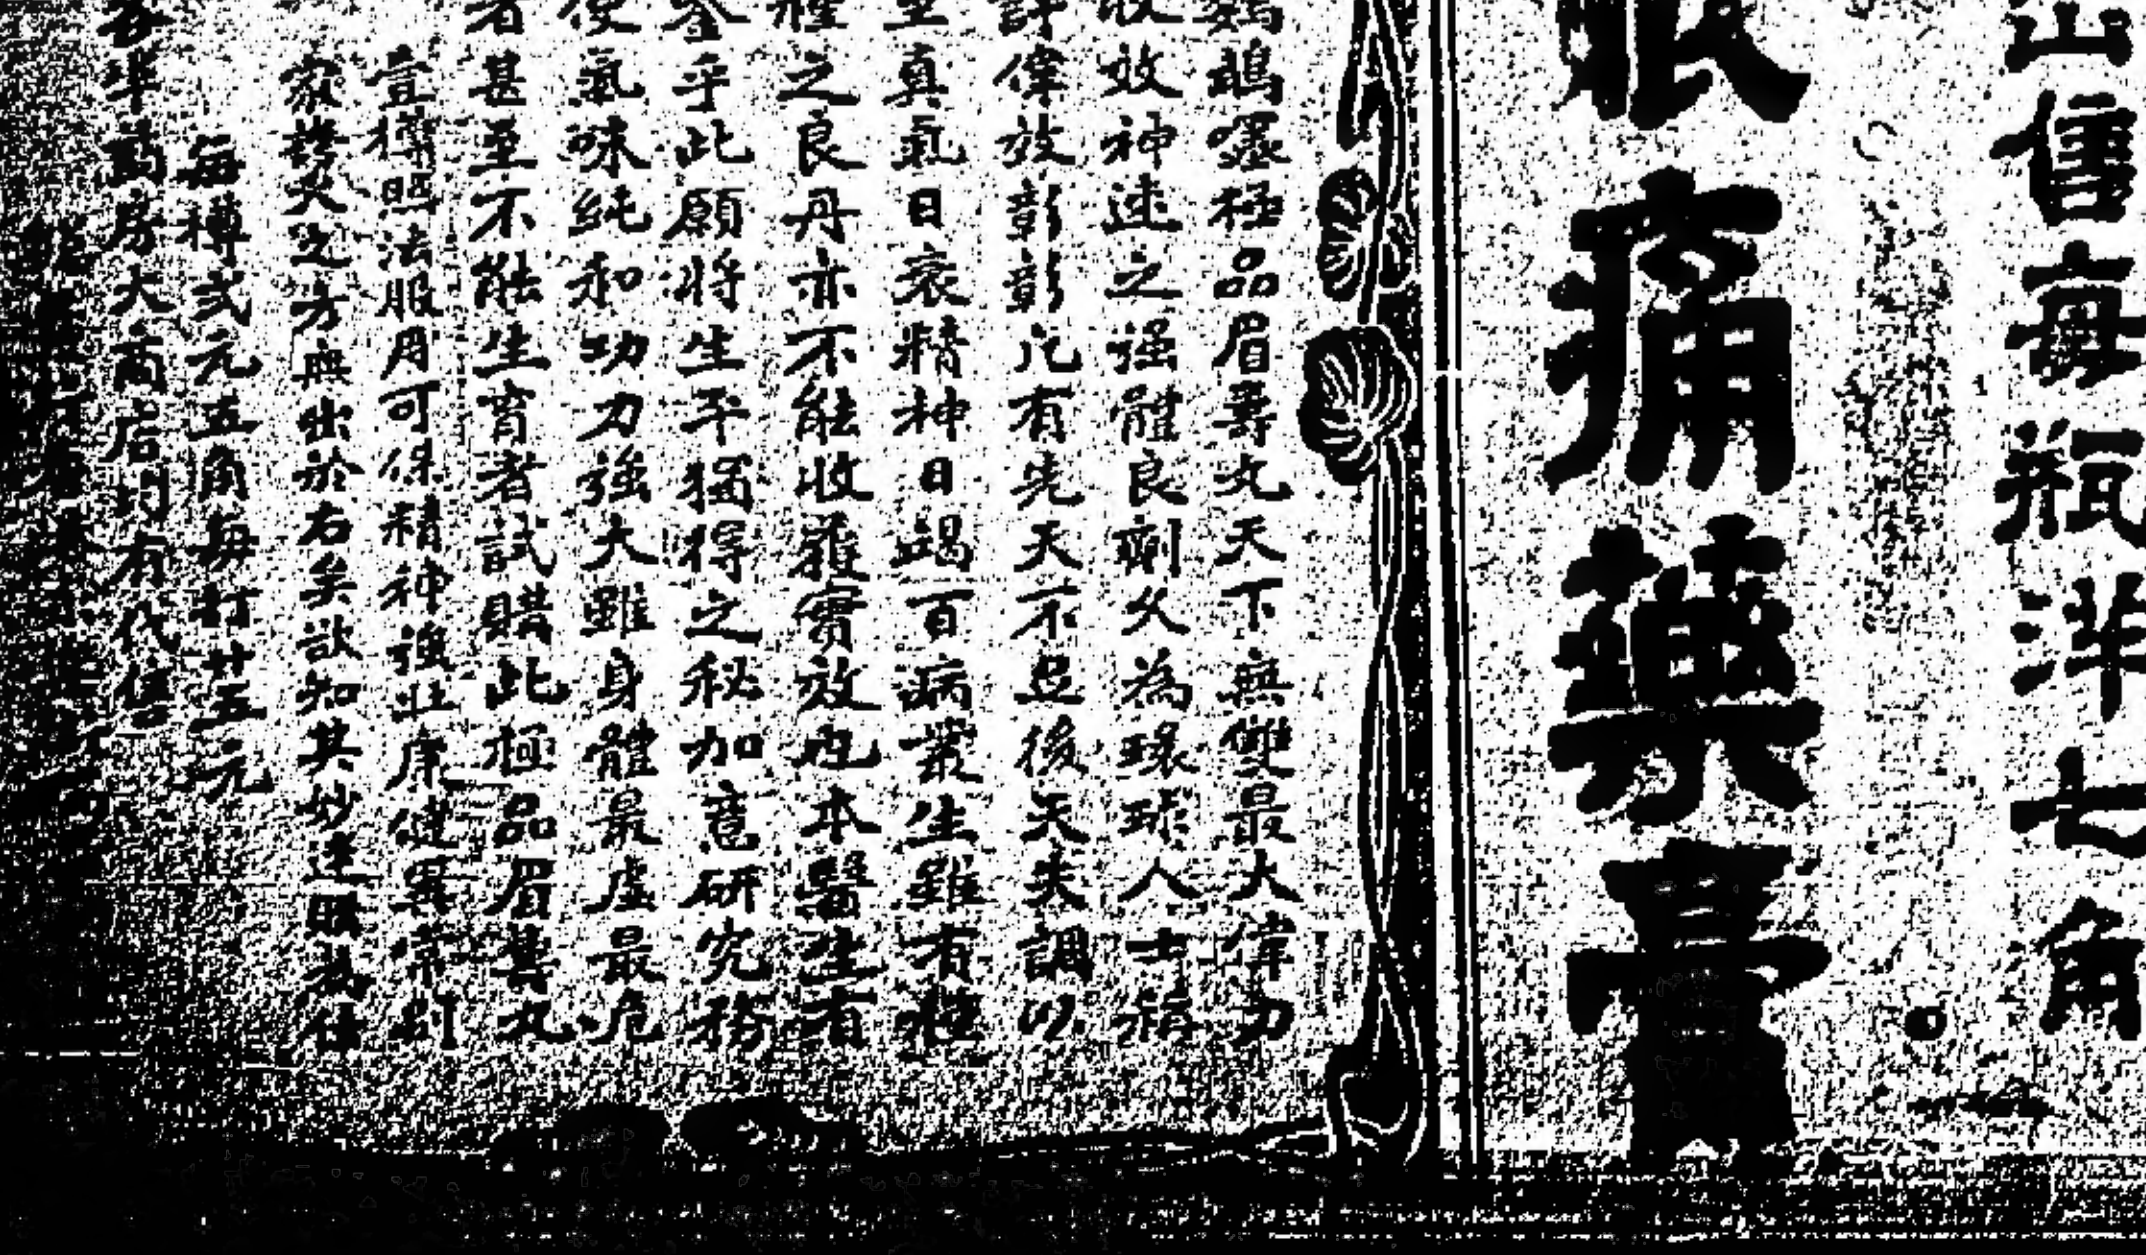 售每瓶洋七角
眼痛藥膏
鵡嘜極品眉壽丸天下無雙最大偉力
收效神速之强體良劑久為環球人士稱
許偉效彰彰凡有先天不足後天失調以
至真氣日衰精神日竭百病叢生雖有種
種之良丹亦不能收獲實效也本醫生有
鍳乎此願將生平獨得之秘加意研究務
使氣味純和功力強大雖身體最虛最危
者甚至不能生育者試購此極品眉壽丸
壹樽照法服用可保精神強壯康健異常
家發久之方無出於右矣欲知其妙速購為佳
每樽弍元五角每打廿五元
各埠葯房大商店均有代售